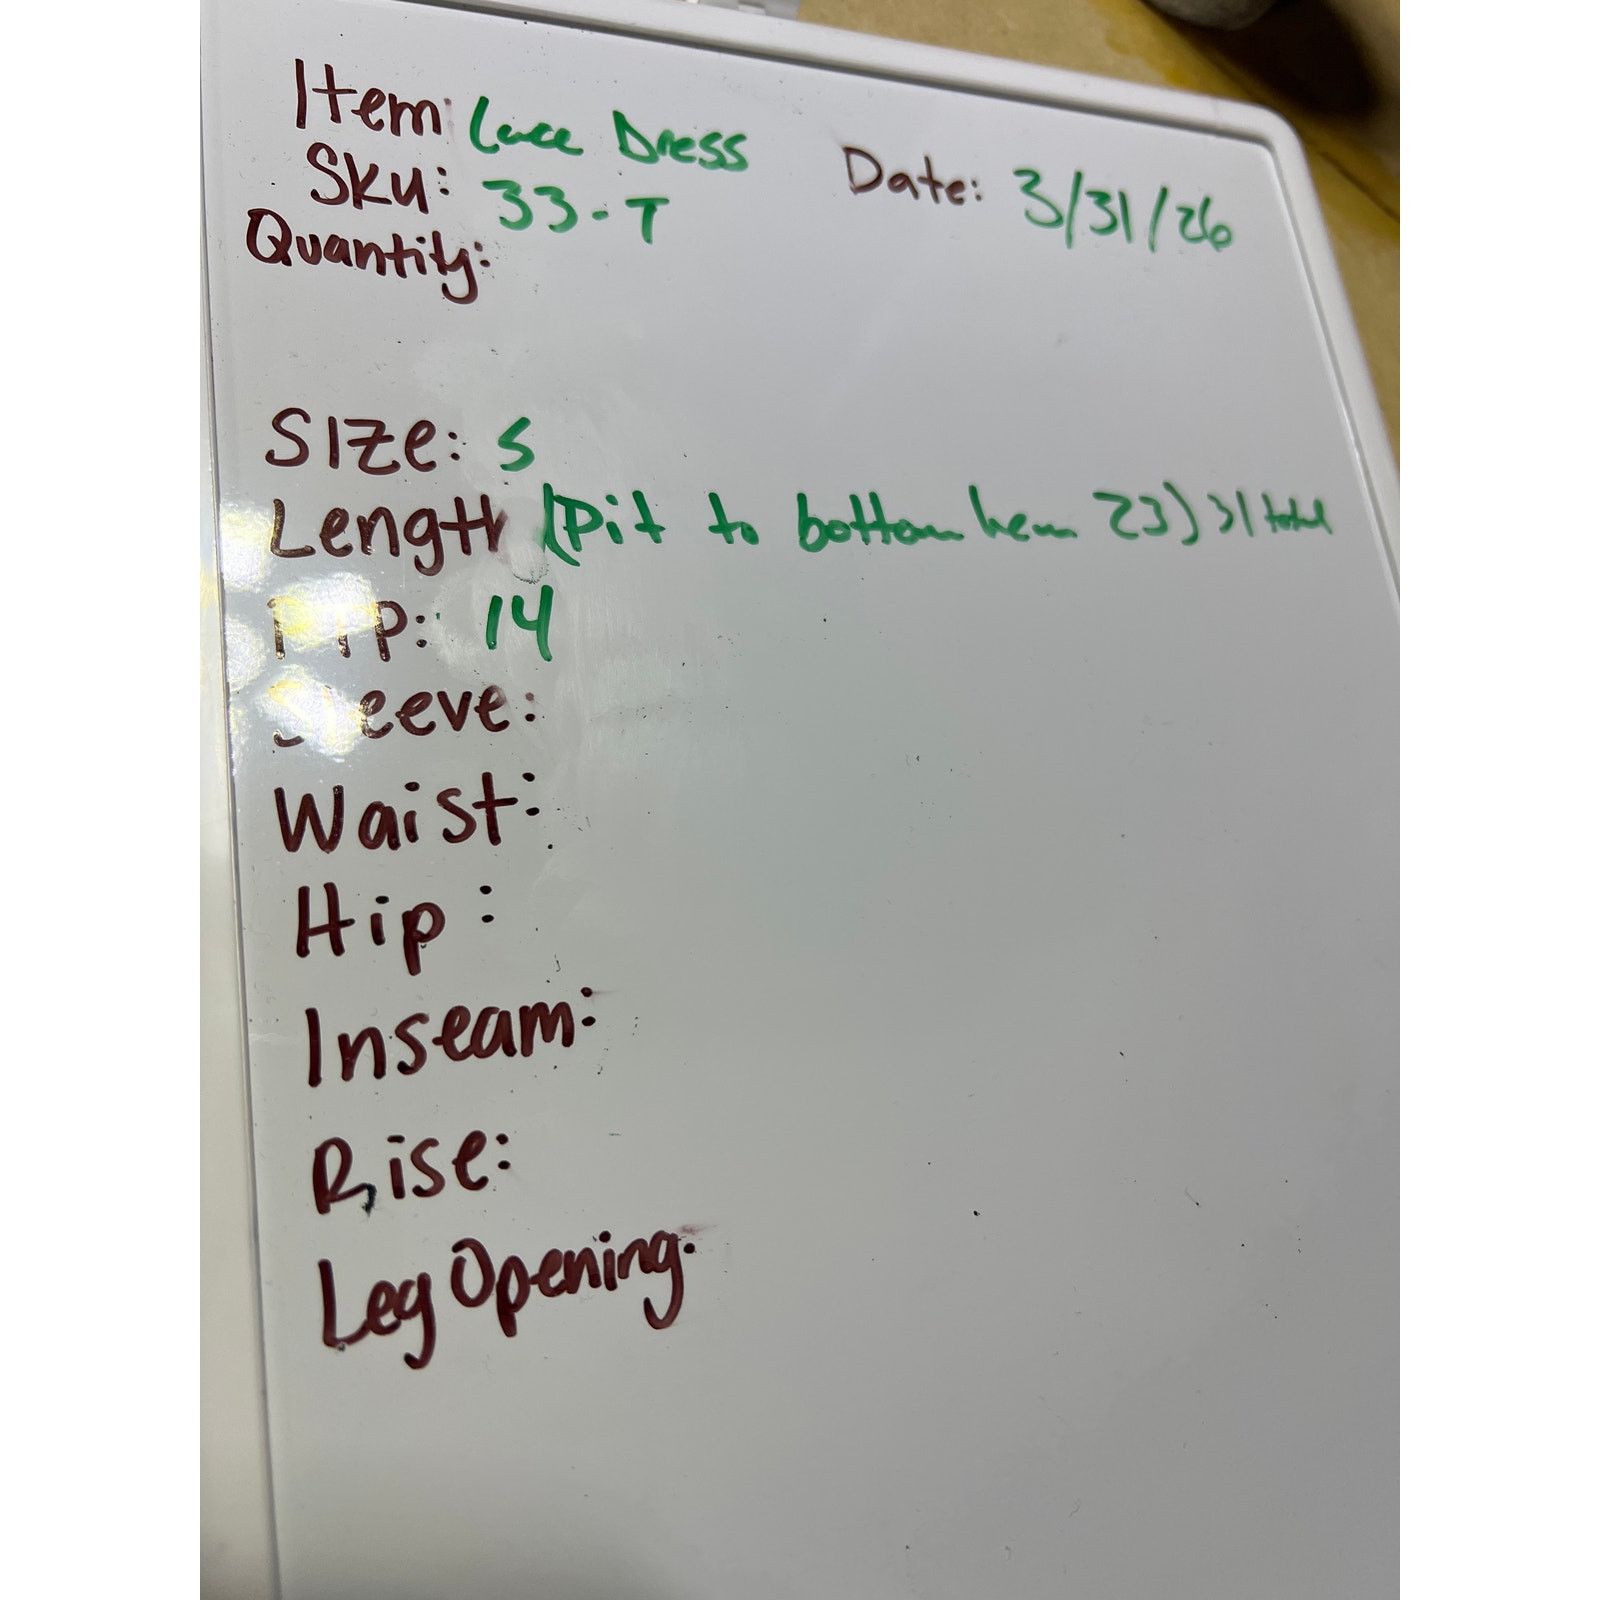 Item: Lace Dress
SKU: 33-T
Date: 3/31/26
Quantity:
Size: S
Length (Pit to bottom hem 23) 31 total
14
Waist:
Hip:
Inseam:
Rise:
Leg Opening: